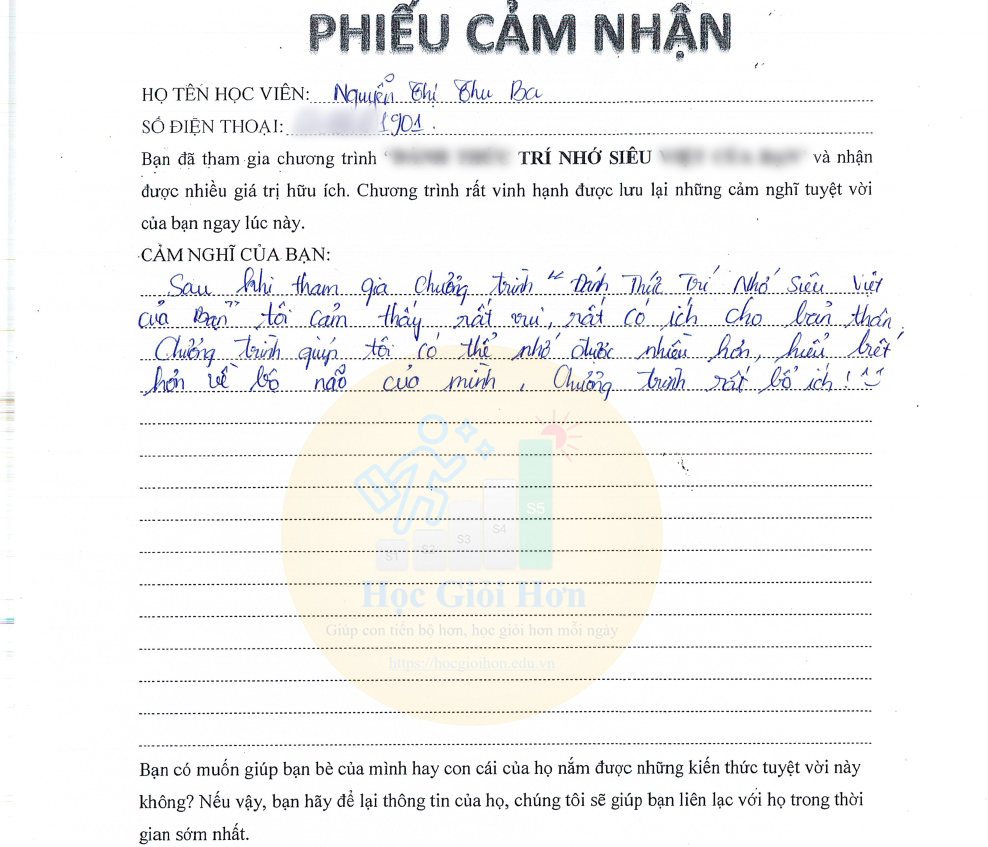 PHIẾU CẢM NHẬN
HỌ TÊN HỌC VIÊN: Nguyễn Thị Thu Ba
SỐ ĐIỆN THOẠI: 1901.
Bạn đã tham gia chương trình " TRÍ NHỚ SIÊU và nhận
được nhiều giá trị hữu ích. Chương trình rất vinh hạnh được lưu lại những cảm nghĩ tuyệt vời
của bạn ngay lúc này.
CẢM NGHĨ CỦA BẠN:
Sau khi tham gia Chương trình " Đánh Thức Trí Nhớ Siêu Việt
của Bạn" tôi cảm thấy rất vui, rất có ích cho bản thân,
Chương trình giúp tôi có thể nhớ được nhiều hơn, hiểu biết
hơn về bộ não của mình. Chương trình rất bổ ích!
S1 S2 S3 S4 S5
Học Giỏi Hơn
Giúp con tiến bộ hơn, học giỏi hơn mỗi ngày
https://hocgioihon.edu.vn
Bạn có muốn giúp bạn bè của mình hay con cái của họ nắm được những kiến thức tuyệt vời này
không? Nếu vậy, bạn hãy để lại thông tin của họ, chúng tôi sẽ giúp bạn liên lạc với họ trong thời
gian sớm nhất.